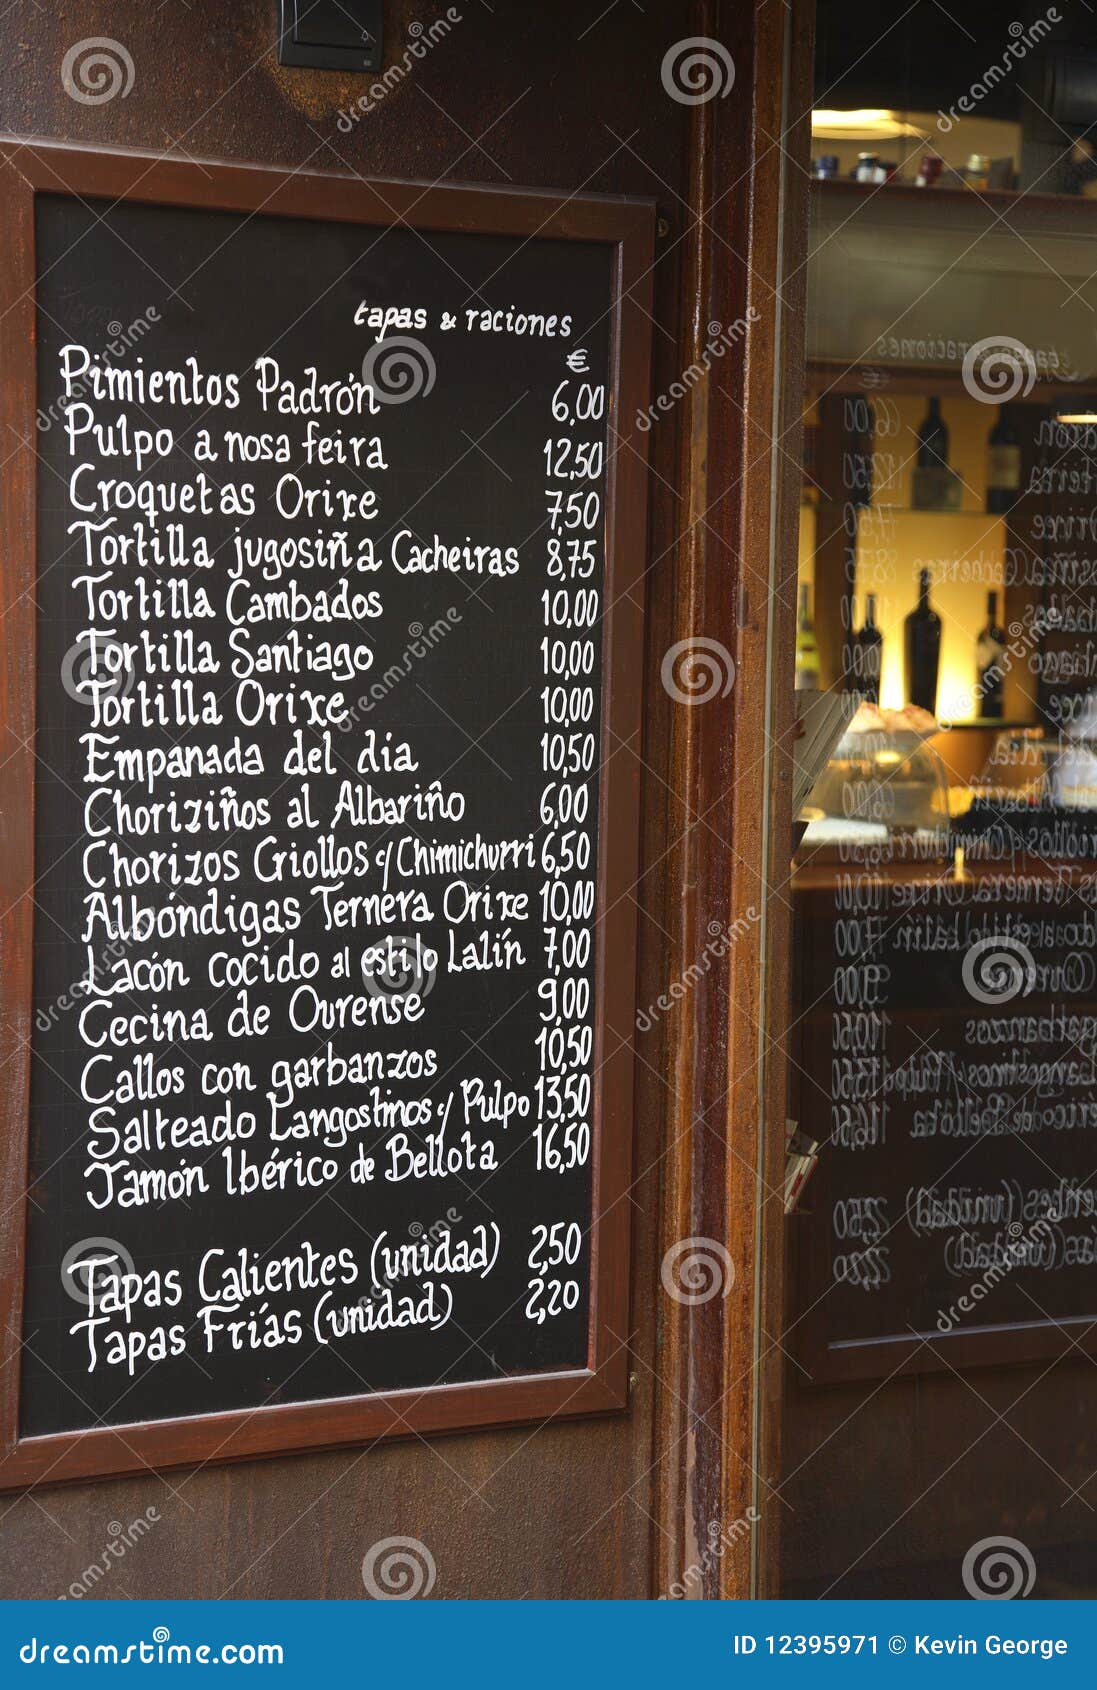 tapas & raciones
€
Pimientos Padrón 6,00
Pulpo a nosa feira 12,50
Croquetas Orixe 7,50
Tortilla jugosiña Cacheiras 8,75
Tortilla Cambados 10,00
Tortilla Santiago 10,00
Tortilla Orixe 10,00
Empanada del dia 10,50
Choriziños al Albariño 6,00
Chorizos Criollos c/ Chimichurri 6,50
Albóndigas Ternera Orixe 10,00
Lacón cocido al estilo Lalín 7,00
Cecina de Ourense 9,00
Callos con garbanzos 10,50
Salteado Langostinos c/ Pulpo 13,50
Jamón Ibérico de Bellota 16,50
Tapas Calientes (unidad) 2,50
Tapas Frías (unidad) 2,20
dreamstime.com
ID 12395971 © Kevin George